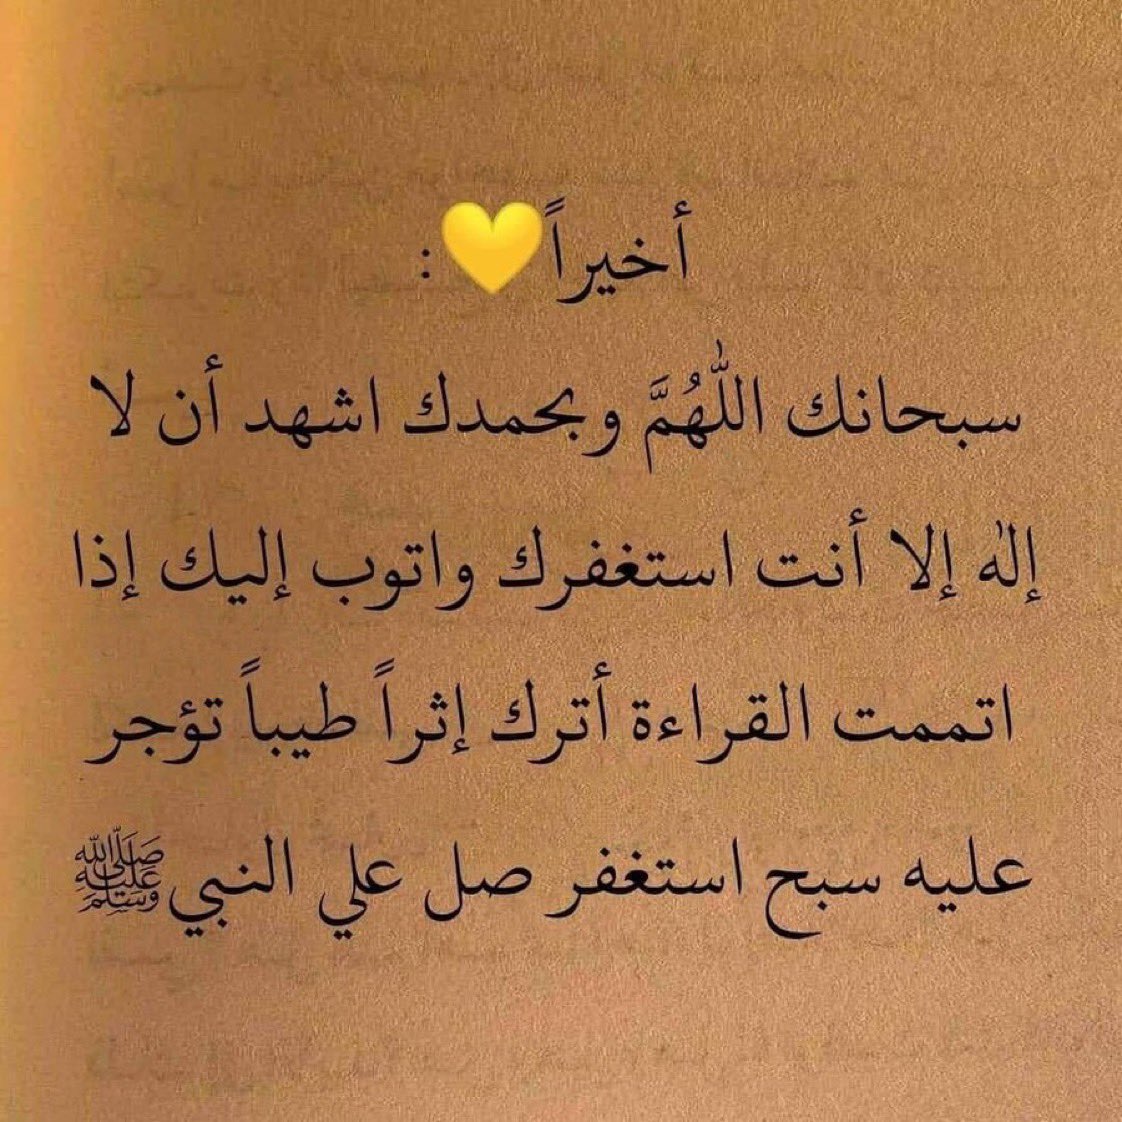 أخيراً💛:
سبحانك اللّٰهُمَّ وبحمدك اشهد أن لا
إلٰه إلا أنت استغفرك واتوب إليك إذا
اتممت القراءة أترك إثراً طيباً تؤجر
عليه سبح استغفر صل علي النبي ﷺ